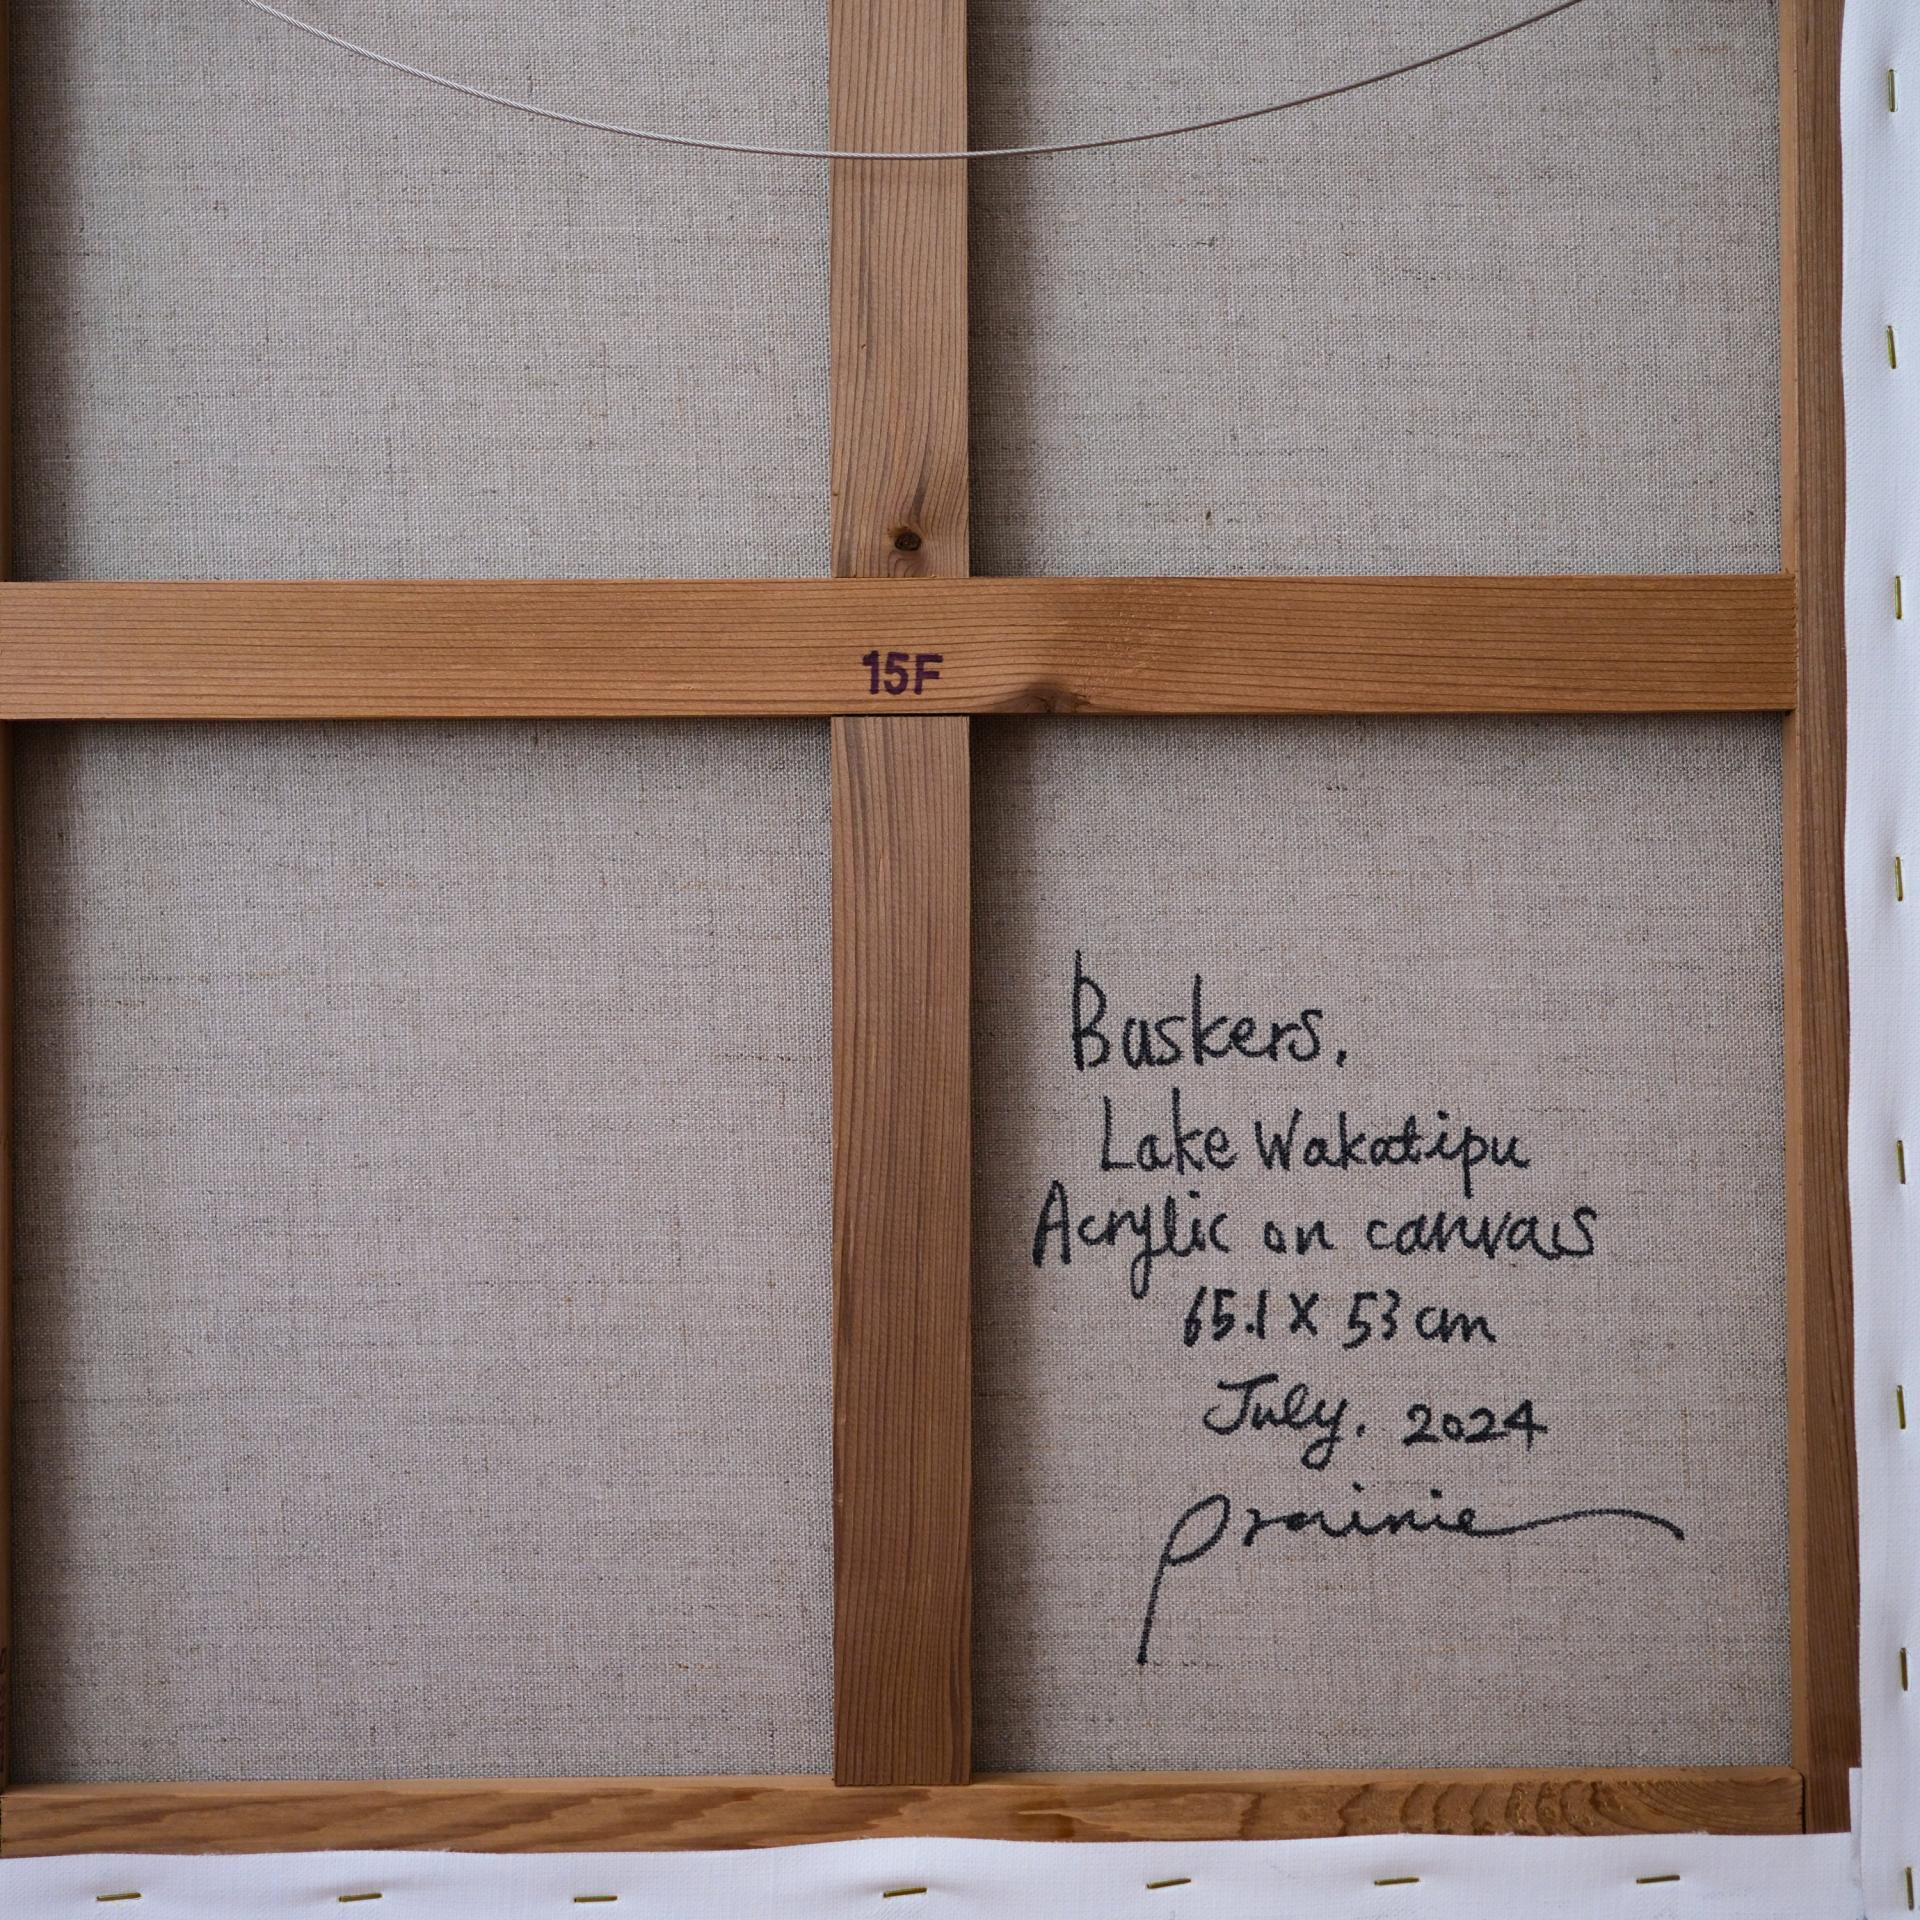 15F
Buskers,
Lake Wakatipu
Acrylic on canvas
65.1 X 53 cm
July, 2024
prairie